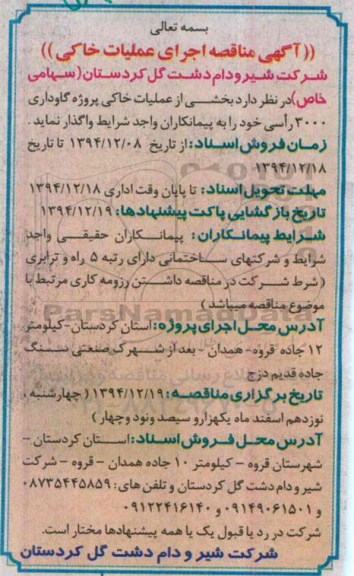 بسمه تعالی
((آگهی مناقصه اجرای عملیات خاکی))
شرکت شیر و دام دشت گل کردستان (سهامی
خاص) در نظر دارد بخشی از عملیات خاکی پروژه گاوداری
۳۰۰۰ رأسی خود را به پیمانکاران واجد شرایط واگذار نماید.
زمان فروش اسناد: از تاریخ ۱۳۹۴/۱۲/۰۸ تا تاریخ
۱۳۹۴/۱۲/۱۸
مهلت تحویل اسناد: تا پایان وقت اداری ۱۳۹۴/۱۲/۱۸
تاریخ بازگشایی پاکت پیشنهادها: ۱۳۹۴/۱۲/۱۹
شرایط پیمانکاران: پیمانکاران حقیقی واجد
شرایط و شرکتهای ساختمانی دارای رتبه ۵ راه و ترابری
(شرط شرکت در مناقصه داشتن رزومه کاری مرتبط با
موضوع مناقصه میباشد)
ParsNamadData
آدرس محل اجرای پروژه: استان کردستان-کیلومتر
۱۲ جاده قروه-همدان - بعد از شهرک صنعتی سنگ
جاده قدیم دزج
تاریخ برگزاری مناقصه: ۱۳۹۴/۱۲/۱۹ (چهارشنبه،
نوزدهم اسفند ماه یکهزارو سیصد ونود وچهار)
آدرس محل فروش اسناد: استان کردستان -
شهرستان قروه - کیلومتر ۱۰ جاده همدان - قروه - شرکت
شیر و دام دشت گل کردستان و تلفن های: ۰۸۷۳۵۴۴۵۸۵۹
و ۰۹۱۴۹۰۶۱۵۰۱ و ۰۹۱۲۲۴۱۶۱۴۰
شرکت در رد یا قبول یک یا همه پیشنهادها مختار است.
شرکت شیر و دام دشت گل کردستان